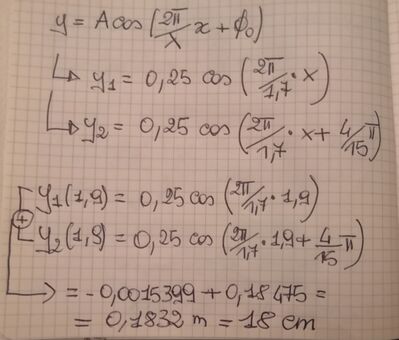 y = A cos (2π/λ x + ϕ₀)
↳ y₁ = 0,25 cos (2π/1,7 · x)
↳ y₂ = 0,25 cos (2π/1,7 · x + 4/15 π)
y₁(1,9) = 0,25 cos (2π/1,7 · 1,9)
+
y₂(1,9) = 0,25 cos (2π/1,7 · 1,9 + 4/15 π)
→ = - 0,0015399 + 0,18475 =
= 0,1832 m = 18 cm